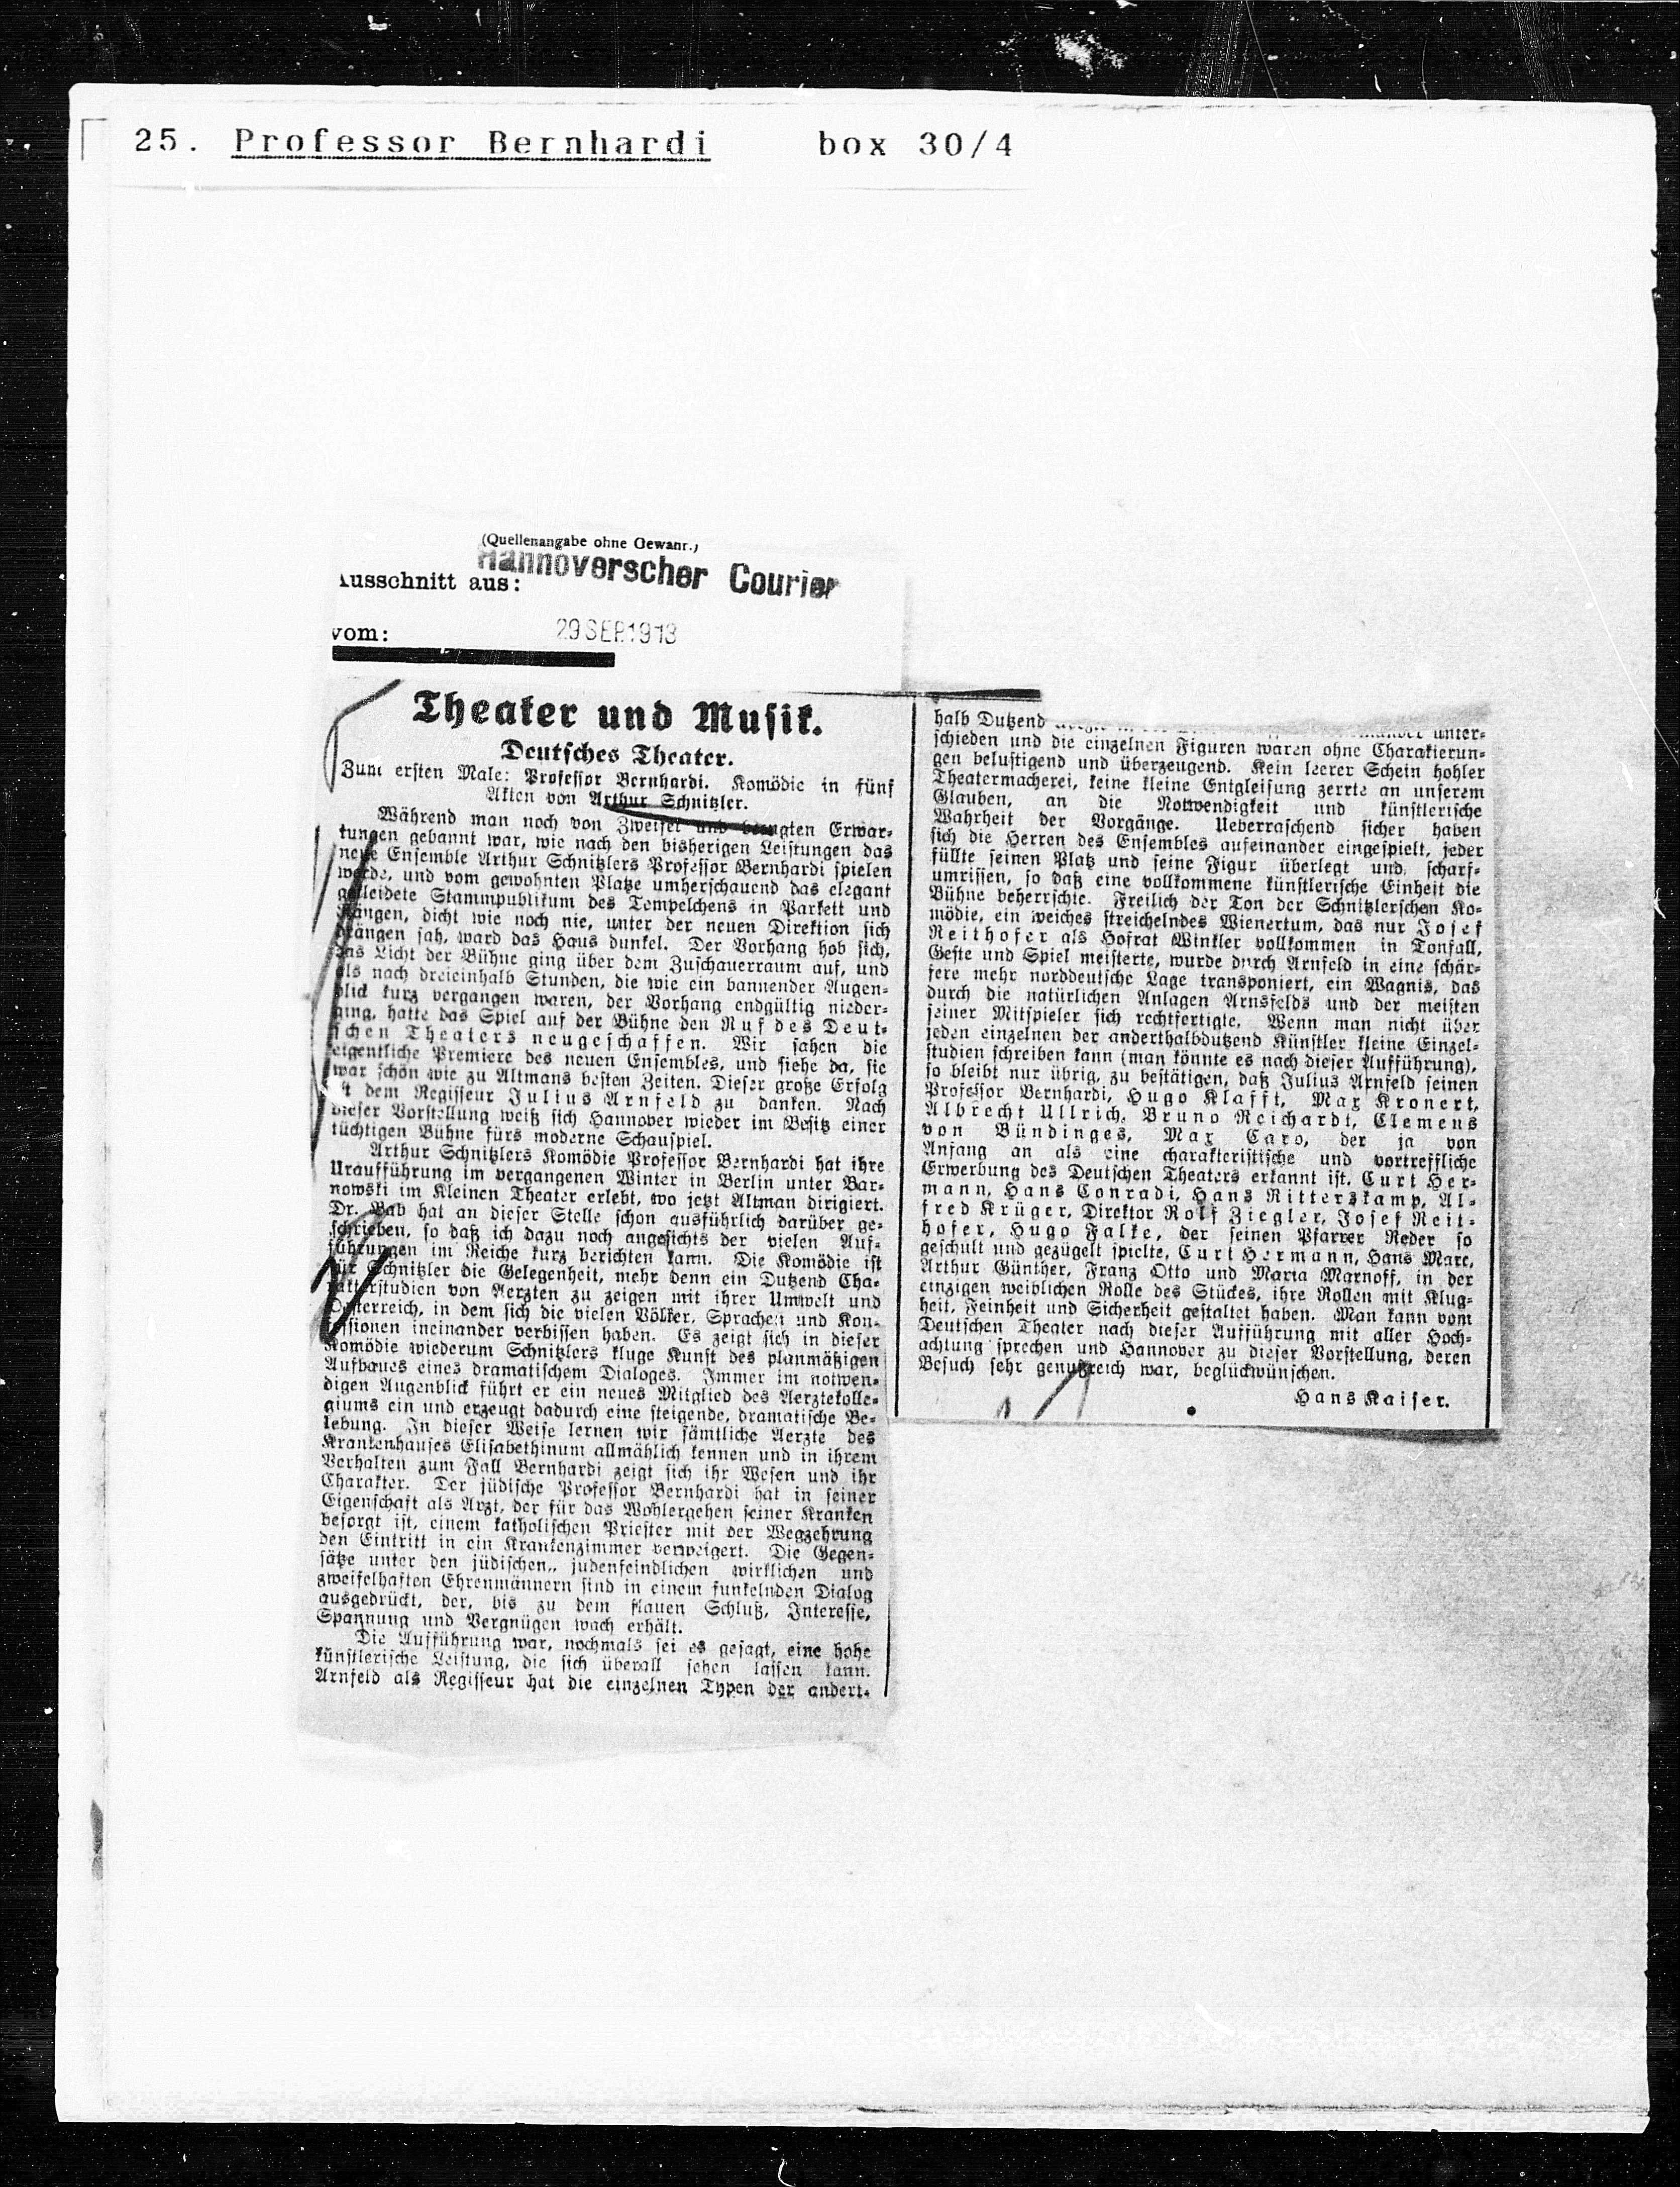 25. Professor Bernhardi box 30/4
(Quellenangabe ohne Gewähr.)
Ausschnitt aus: Hannoverscher Courier
vom: 29 SEP. 1913
Theater und Musik.
Deutsches Theater.
Zum ersten Male: Professor Bernhardi. Komödie in fünf
Akten von Arthur Schnitzler.
Während man noch von Zweifel und Erwar-
tungen gebannt war, wie nach den bisherigen Leistungen das
neue Ensemble Arthur Schnitzlers Professor Bernhardi spielen
werde, und vom gewohnten Platze umherschauend das elegant
gekleidete Stammpublikum des Tempelchens in Parkett und
Rängen, dicht wie noch nie, unter der neuen Direktion sich
drängen sah, ward das Haus dunkel. Der Vorhang hob sich,
das Licht der Bühne ging über dem Zuschauerraum auf, und
als nach dreieinhalb Stunden, die wie ein bannender Augen-
blick kurz vergangen waren, der Vorhang endgültig nieder-
ging, hatte das Spiel auf der Bühne den Ruf des Deut-
schen Theaters neugeschaffen. Wir sahen die
eigentliche Premiere des neuen Ensembles, und siehe da, sie
war schön wie zu Altmans besten Zeiten. Dieser große Erfolg
ist dem Regisseur Julius Arnfeld zu danken. Nach
dieser Vorstellung weiß sich Hannover wieder im Besitz einer
tüchtigen Bühne fürs moderne Schauspiel.
Arthur Schnitzlers Komödie Professor Bernhardi hat ihre
Uraufführung im vergangenen Winter in Berlin unter Bar-
nowski im Kleinen Theater erlebt, wo jetzt Altman dirigiert.
Dr. Bab hat an dieser Stelle schon ausführlich darüber ge-
schrieben, so daß ich dazu noch angesichts der vielen Auf-
führungen im Reiche kurz berichten kann. Die Komödie ist
für Schnitzler die Gelegenheit, mehr denn ein Dutzend Cha-
rakterstudien von Aerzten zu zeigen mit ihrer Umwelt und
Oesterreich, in dem sich die vielen Völker, Sprachen und Kon-
fessionen ineinander verbissen haben. Es zeigt sich in dieser
Komödie wiederum Schnitzlers kluge Kunst des planmäßigen
Aufbaues eines dramatischem Dialoges. Immer im notwen-
digen Augenblick führt er ein neues Mitglied des Aerztekolle-
giums ein und erzeugt dadurch eine steigende, dramatische Be-
lebung. In dieser Weise lernen wir sämtliche Aerzte des
Krankenhauses Elisabethinum allmählich kennen und in ihrem
Verhalten zum Fall Bernhardi zeigt sich ihr Wesen und ihr
Charakter. Der jüdische Professor Bernhardi hat in seiner
Eigenschaft als Arzt, der für das Wohlergehen seiner Kranken
besorgt ist, einem katholischen Priester mit der Wegzehrung
den Eintritt in ein Krankenzimmer verweigert. Die Gegen-
sätze unter den jüdischen,, judenfeindlichen wirklichen und
zweifelhaften Ehrenmännern sind in einem funkelnden Dialog
ausgedrückt, der, bis zu dem flauen Schluß, Interesse,
Spannung und Vergnügen wach erhält.
Die Aufführung war, nochmals sei es gesagt, eine hohe
künstlerische Leistung, die sich überall sehen lassen kann.
Arnfeld als Regisseur hat die einzelnen Typen der andert-
halb Dutzend unter-
schieden und die einzelnen Figuren waren ohne Charakterun-
gen belustigend und überzeugend. Kein leerer Schein hohler
Theatermacherei, keine kleine Entgleisung zerrte an unserem
Glauben, an die Notwendigkeit und künstlerische
Wahrheit der Vorgänge. Ueberraschend sicher haben
sich die Herren des Ensembles aufeinander eingespielt, jeder
füllte seinen Platz und seine Figur überlegt und scharf-
umrissen, so daß eine vollkommene künstlerische Einheit die
Bühne beherrschte. Freilich der Ton der Schnitzlerschen Ko-
mödie, ein weiches streichelndes Wienertum, das nur Josef
Reithofer als Hofrat Winkler vollkommen in Tonfall,
Geste und Spiel meisterte, wurde durch Arnfeld in eine schär-
fere mehr norddeutsche Lage transponiert, ein Wagnis, das
durch die natürlichen Anlagen Arnsfelds und der meisten
seiner Mitspieler sich rechtfertigte. Wenn man nicht über
jeden einzelnen der anderthalbdutzend Künstler kleine Einzel-
studien schreiben kann (man könnte es nach dieser Aufführung),
so bleibt nur übrig, zu bestätigen, daß Julius Arnfeld seinen
Professor Bernhardi, Hugo Klafft, Max Kronert,
Albrecht Ullrich, Bruno Reichardt, Clemens
von Bündinges, Max Caro, der ja von
Anfang an als eine charakteristische und vortreffliche
Erwerbung des Deutschen Theaters erkannt ist, Curt Her-
mann, Hans Conradi, Hans Ritterskamp, Al-
fred Krüger, Direktor Rolf Ziegler, Josef Reit-
hofer, Hugo Falke, der seinen Pfarrer Reder so
geschult und gezügelt spielte, Curt Hermann, Hans Marc,
Arthur Günther, Franz Otto und Maria Marnoff, in der
einzigen weiblichen Rolle des Stückes, ihre Rollen mit Klug-
heit, Feinheit und Sicherheit gestaltet haben. Man kann vom
Deutschen Theater nach dieser Aufführung mit aller Hoch-
achtung sprechen und Hannover zu dieser Vorstellung, deren
Besuch sehr genußreich war, beglückwünschen.
Hans Kaiser.